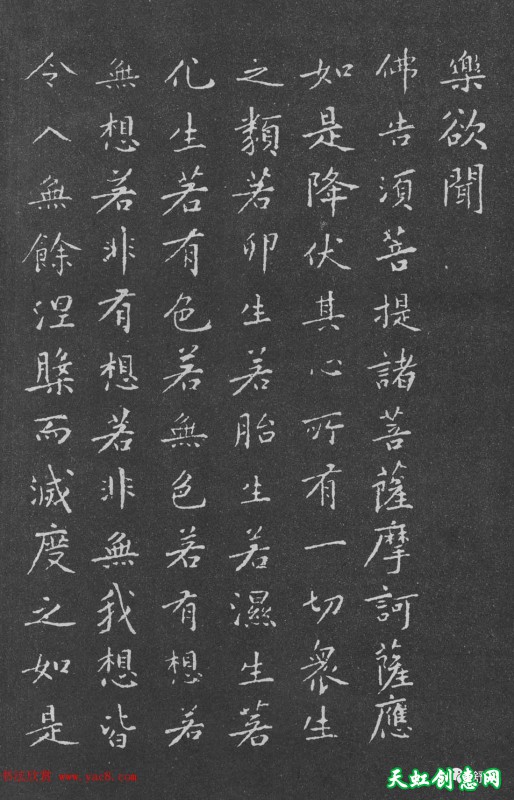 樂欲聞
佛告須菩提諸菩薩摩訶薩應
如是降伏其心所有一切眾生
之類若卵生若胎生若濕生若
化生若有色若無色若有想若
無想若非有想若非無我想皆
令入無餘涅槃而滅度之如是
书法欣赏 www.yac8.com
天虹创意网